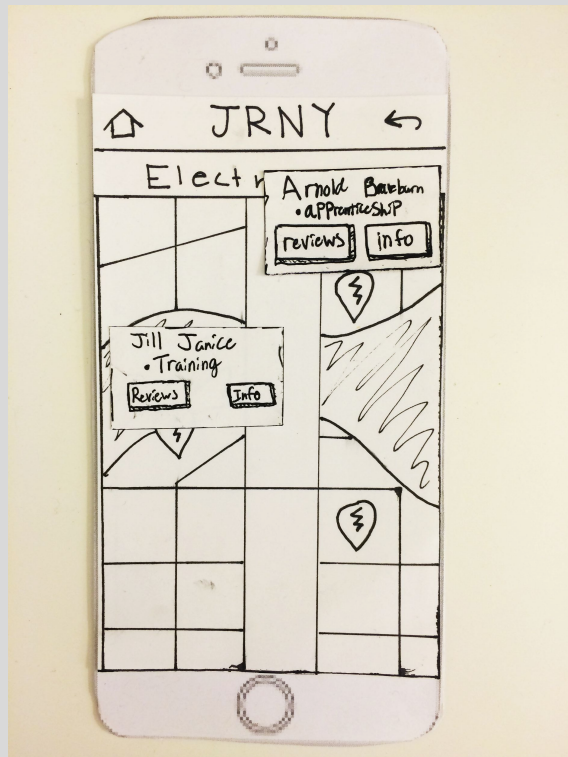 JRNY
Electr
Arnold
• apprenticeship
reviews info
Jill Janice
• Training
Reviews Info